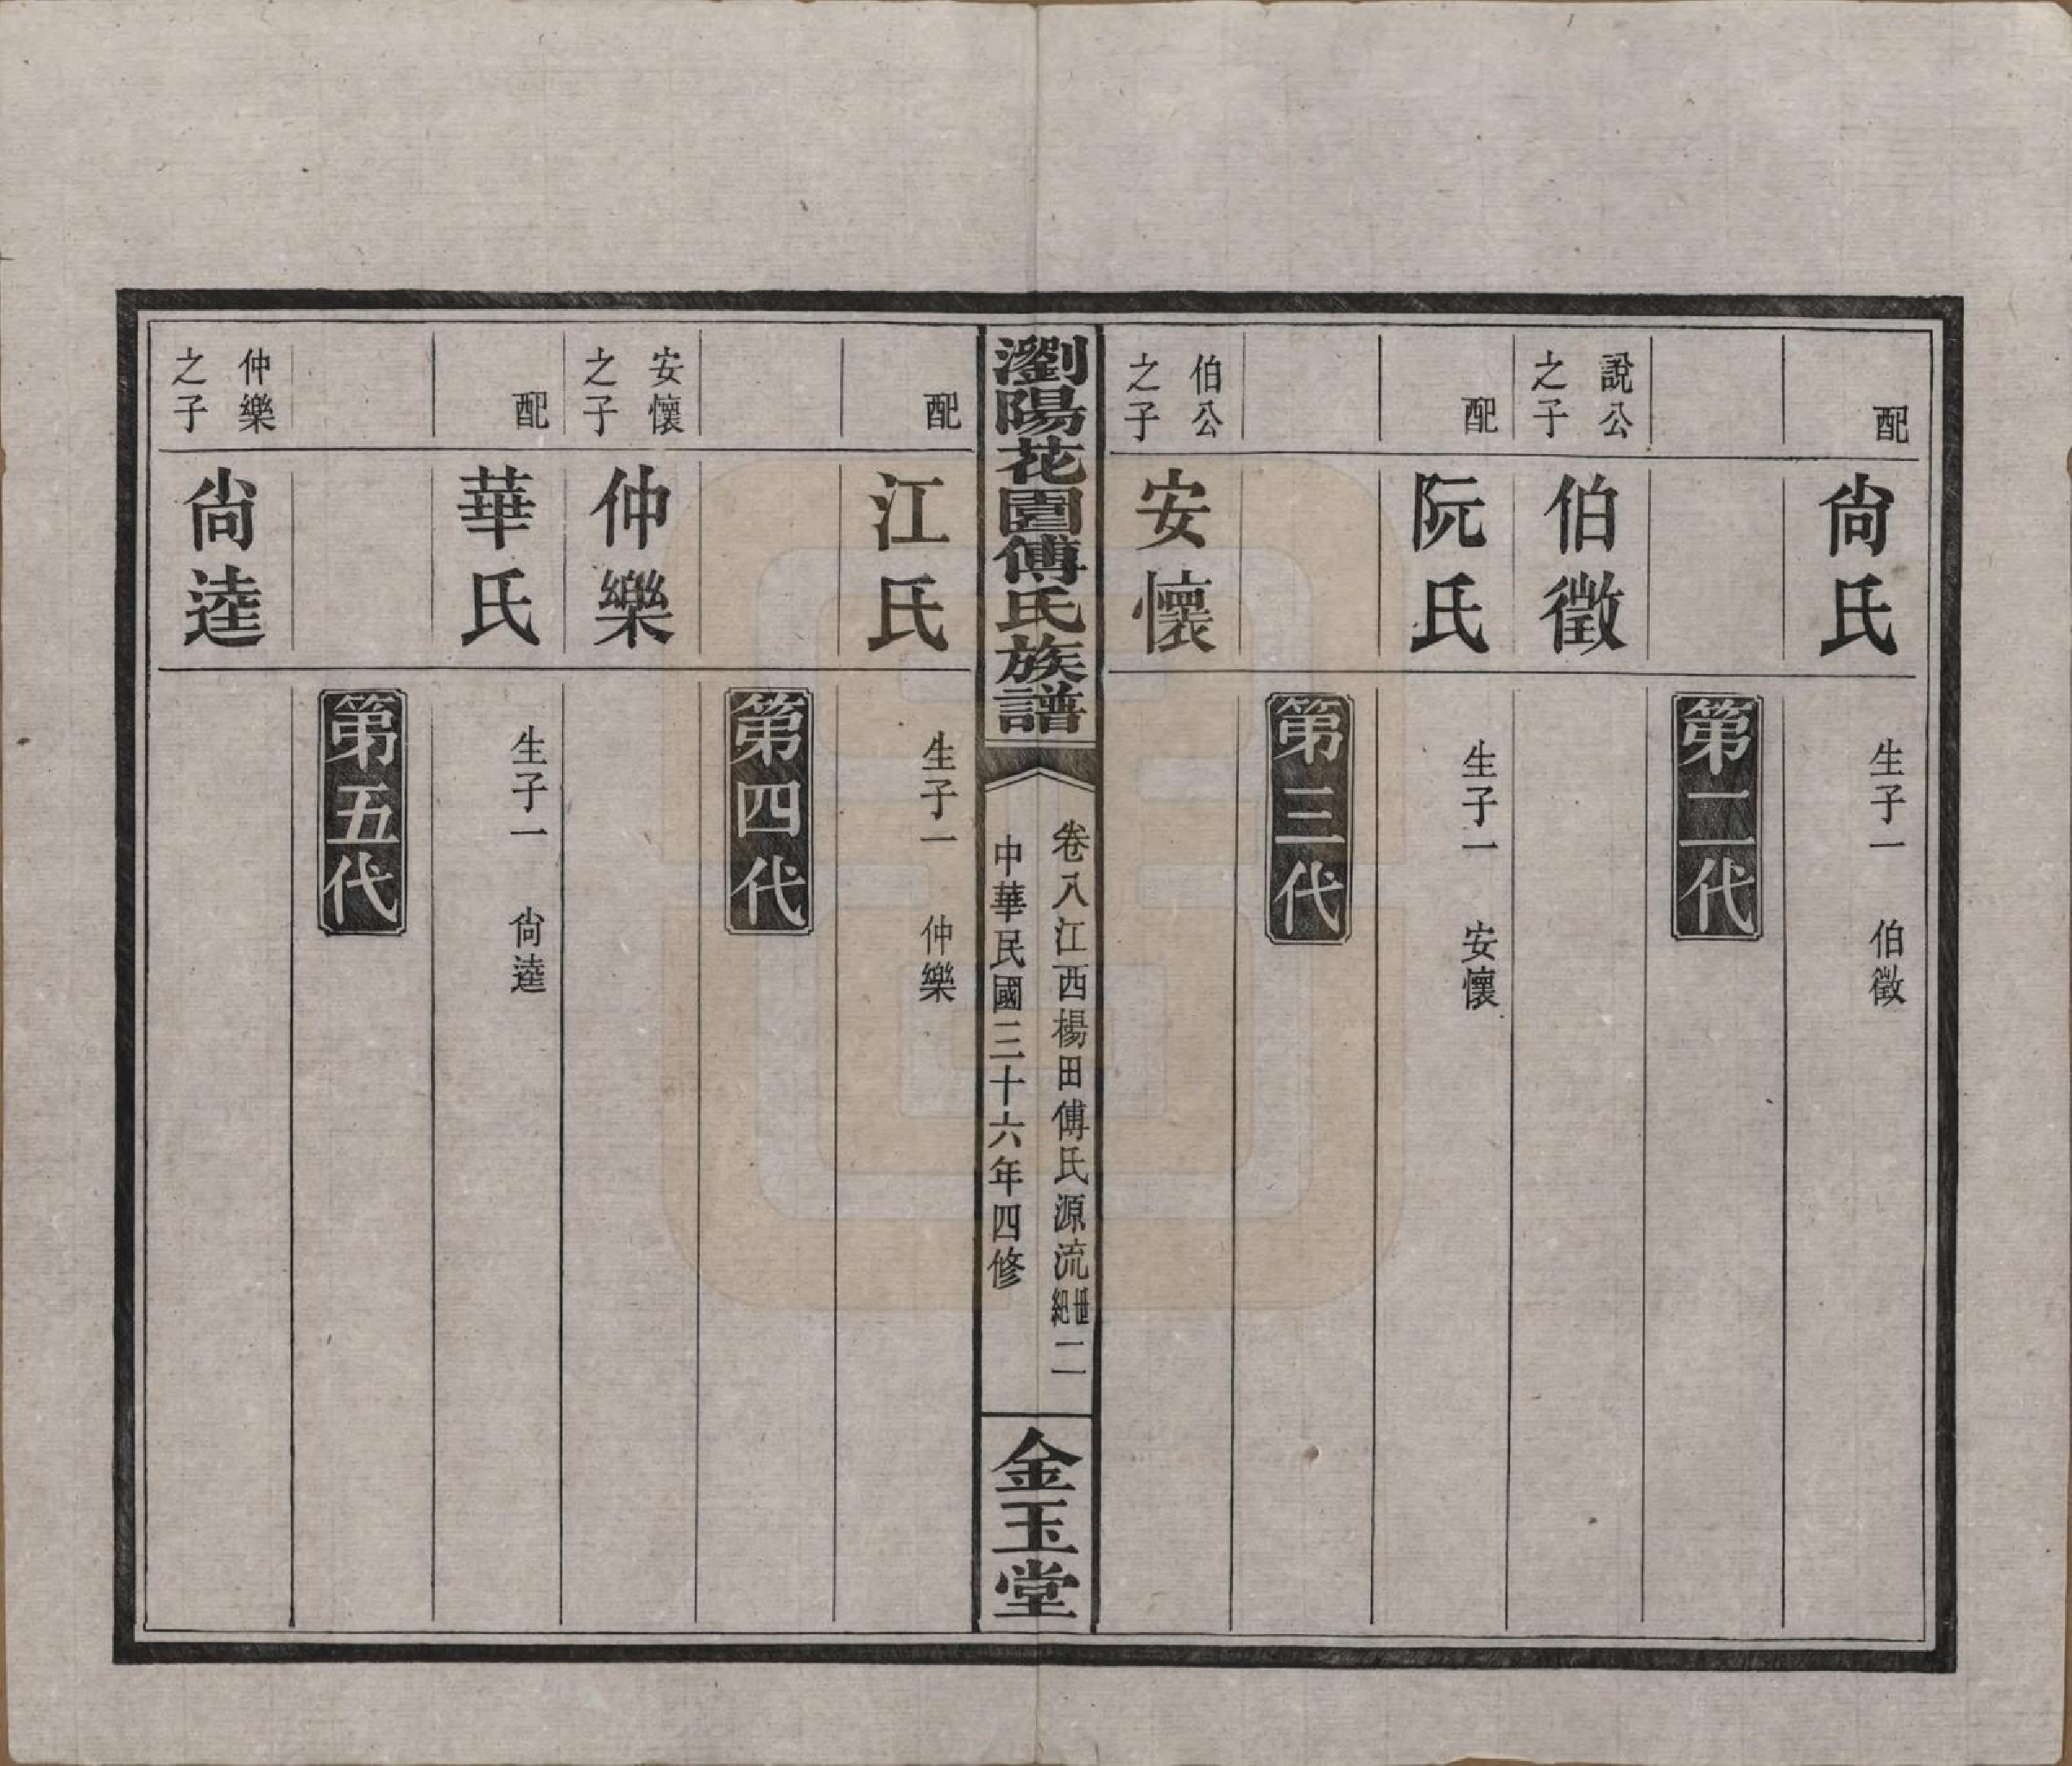 配 尙氏 生子一 伯徵
第二代
說公之子 伯徵
配 阮氏 生子一 安懷
第三代
伯公之子 安懷
瀏陽花園傅氏族譜
卷八江西楊田傅氏源流世紀 二
中華民國三十六年四修
金玉堂
配 江氏 生子一 仲樂
第四代
安懷之子 仲樂
配 華氏 生子一 尙逵
第五代
仲樂之子 尙逵